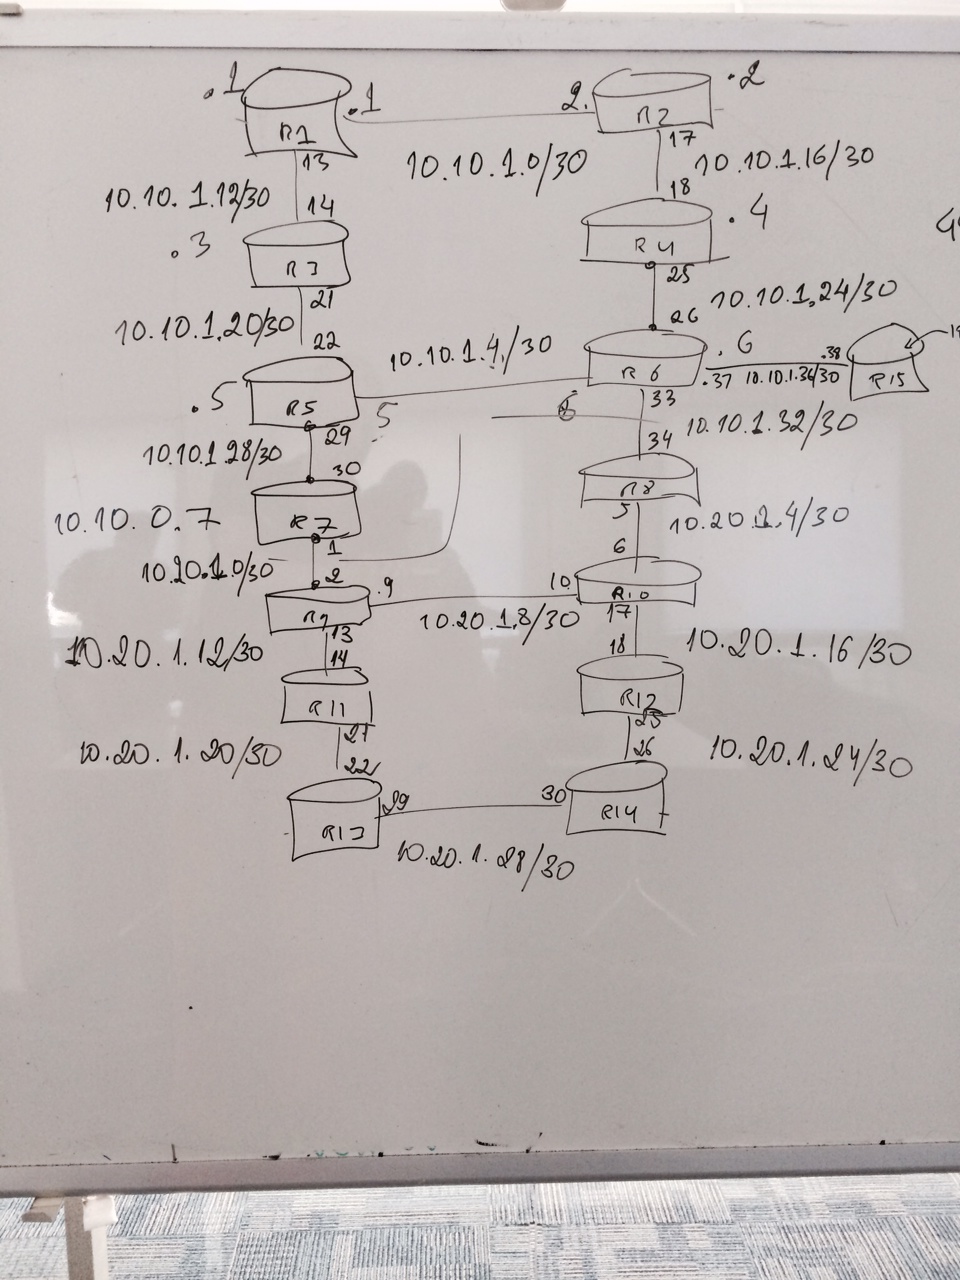 .1
R1
.1
2.
R2
.2
13
10.10.1.0/30
17
10.10.1.16/30
10.10.1.12/30
14
18
.3
R3
R4
.4
21
25
10.10.1.20/30
22
10.10.1.24/30
26
10.10.1.4/30
R6
.6
.38
R15
.37
10.10.1.36/30
.5
R5
5
6
33
29
10.10.1.32/30
10.10.1.28/30
34
30
R8
10.10.0.7
R7
5
10.20.1.4/30
1
6
10.20.1.0/30
2
.9
10
R10
R9
10.20.1.8/30
17
13
10.20.1.12/30
14
18
10.20.1.16/30
R11
R12
21
25
10.20.1.20/30
22
26
10.20.1.24/30
R13
29
30
R14
10.20.1.28/30